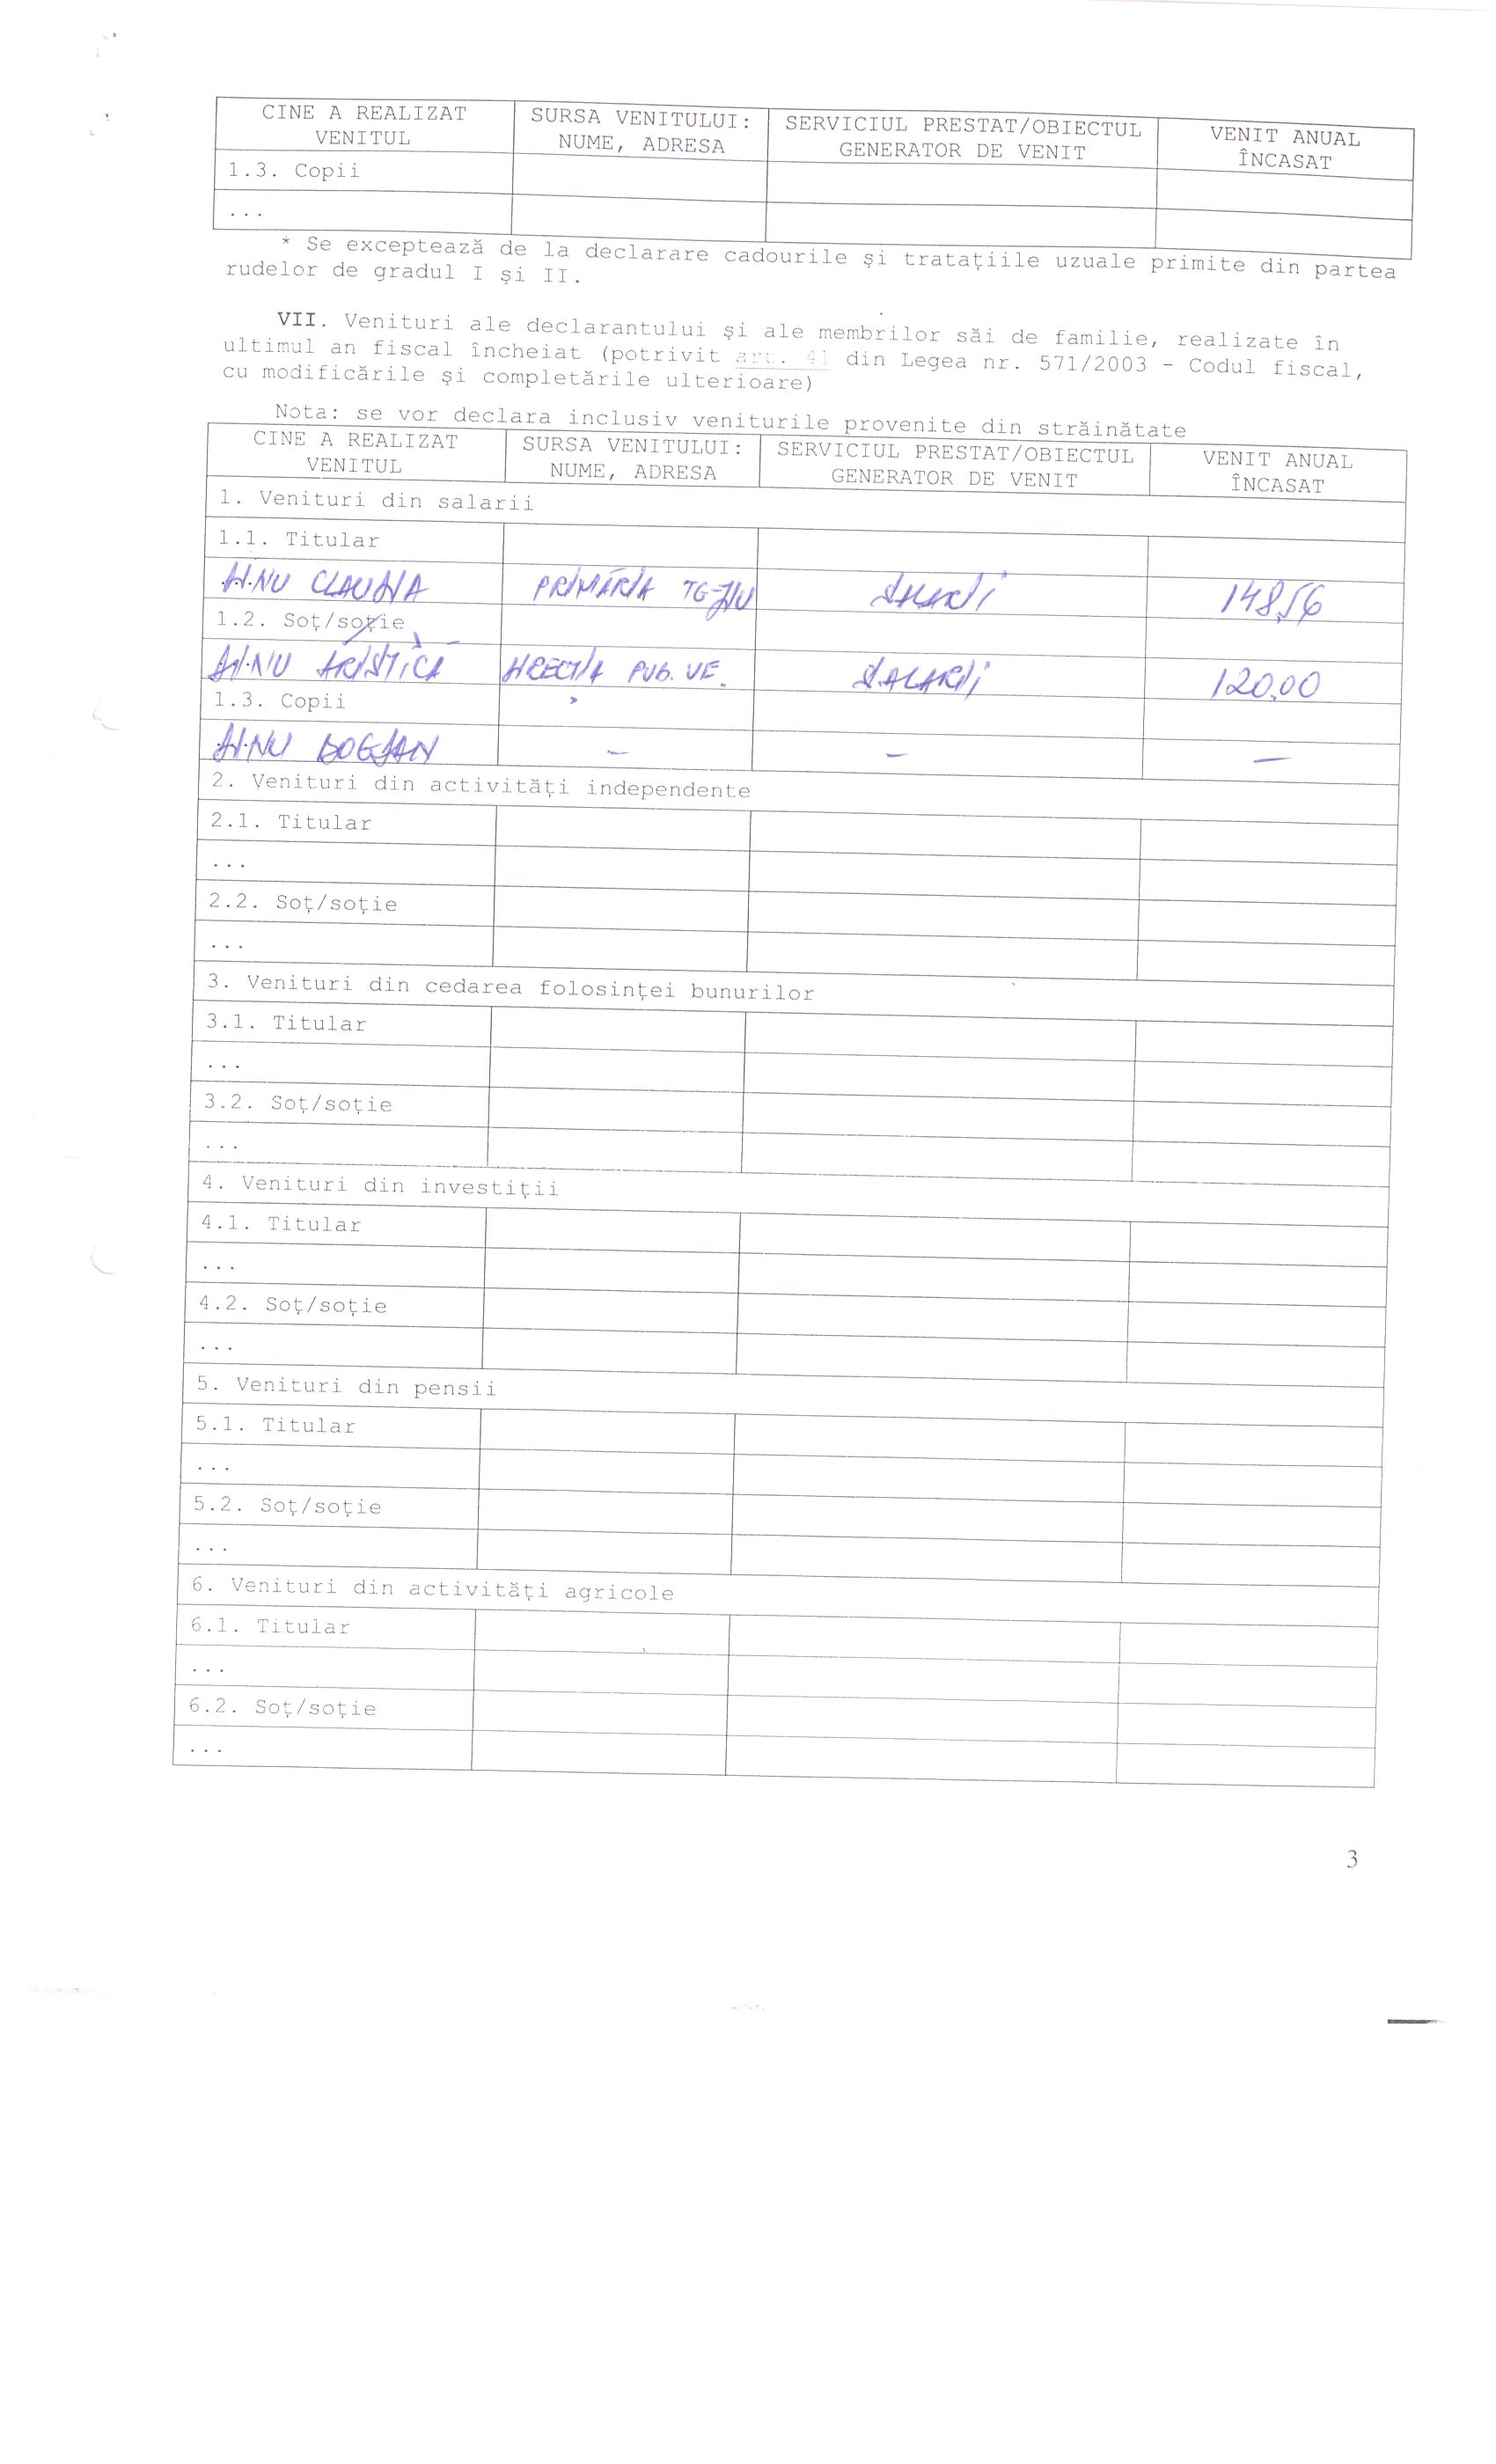 CINE A REALIZAT VENITUL | SURSA VENITULUI: NUME, ADRESA | SERVICIUL PRESTAT/OBIECTUL GENERATOR DE VENIT | VENIT ANUAL ÎNCASAT
1.3. Copii
...
* Se exceptează de la declarare cadourile şi trataţiile uzuale primite din partea
rudelor de gradul I şi II.
VII. Venituri ale declarantului şi ale membrilor săi de familie, realizate în
ultimul an fiscal încheiat (potrivit art. 41 din Legea nr. 571/2003 - Codul fiscal,
cu modificările şi completările ulterioare)
Nota: se vor declara inclusiv veniturile provenite din străinătate
CINE A REALIZAT VENITUL | SURSA VENITULUI: NUME, ADRESA | SERVICIUL PRESTAT/OBIECTUL GENERATOR DE VENIT | VENIT ANUAL ÎNCASAT
1. Venituri din salarii
1.1. Titular
CLAUDIA | PRIMĂRIA TG-JIU | SALARII | 14856
1.2. Soţ/soţie
ARISTICA | PUB. | SALARII | 12000
1.3. Copii
BOGDAN | - | - | -
2. Venituri din activităţi independente
2.1. Titular
...
2.2. Soţ/soţie
...
3. Venituri din cedarea folosinţei bunurilor
3.1. Titular
...
3.2. Soţ/soţie
...
4. Venituri din investiţii
4.1. Titular
...
4.2. Soţ/soţie
...
5. Venituri din pensii
5.1. Titular
...
5.2. Soţ/soţie
...
6. Venituri din activităţi agricole
6.1. Titular
...
6.2. Soţ/soţie
...
3